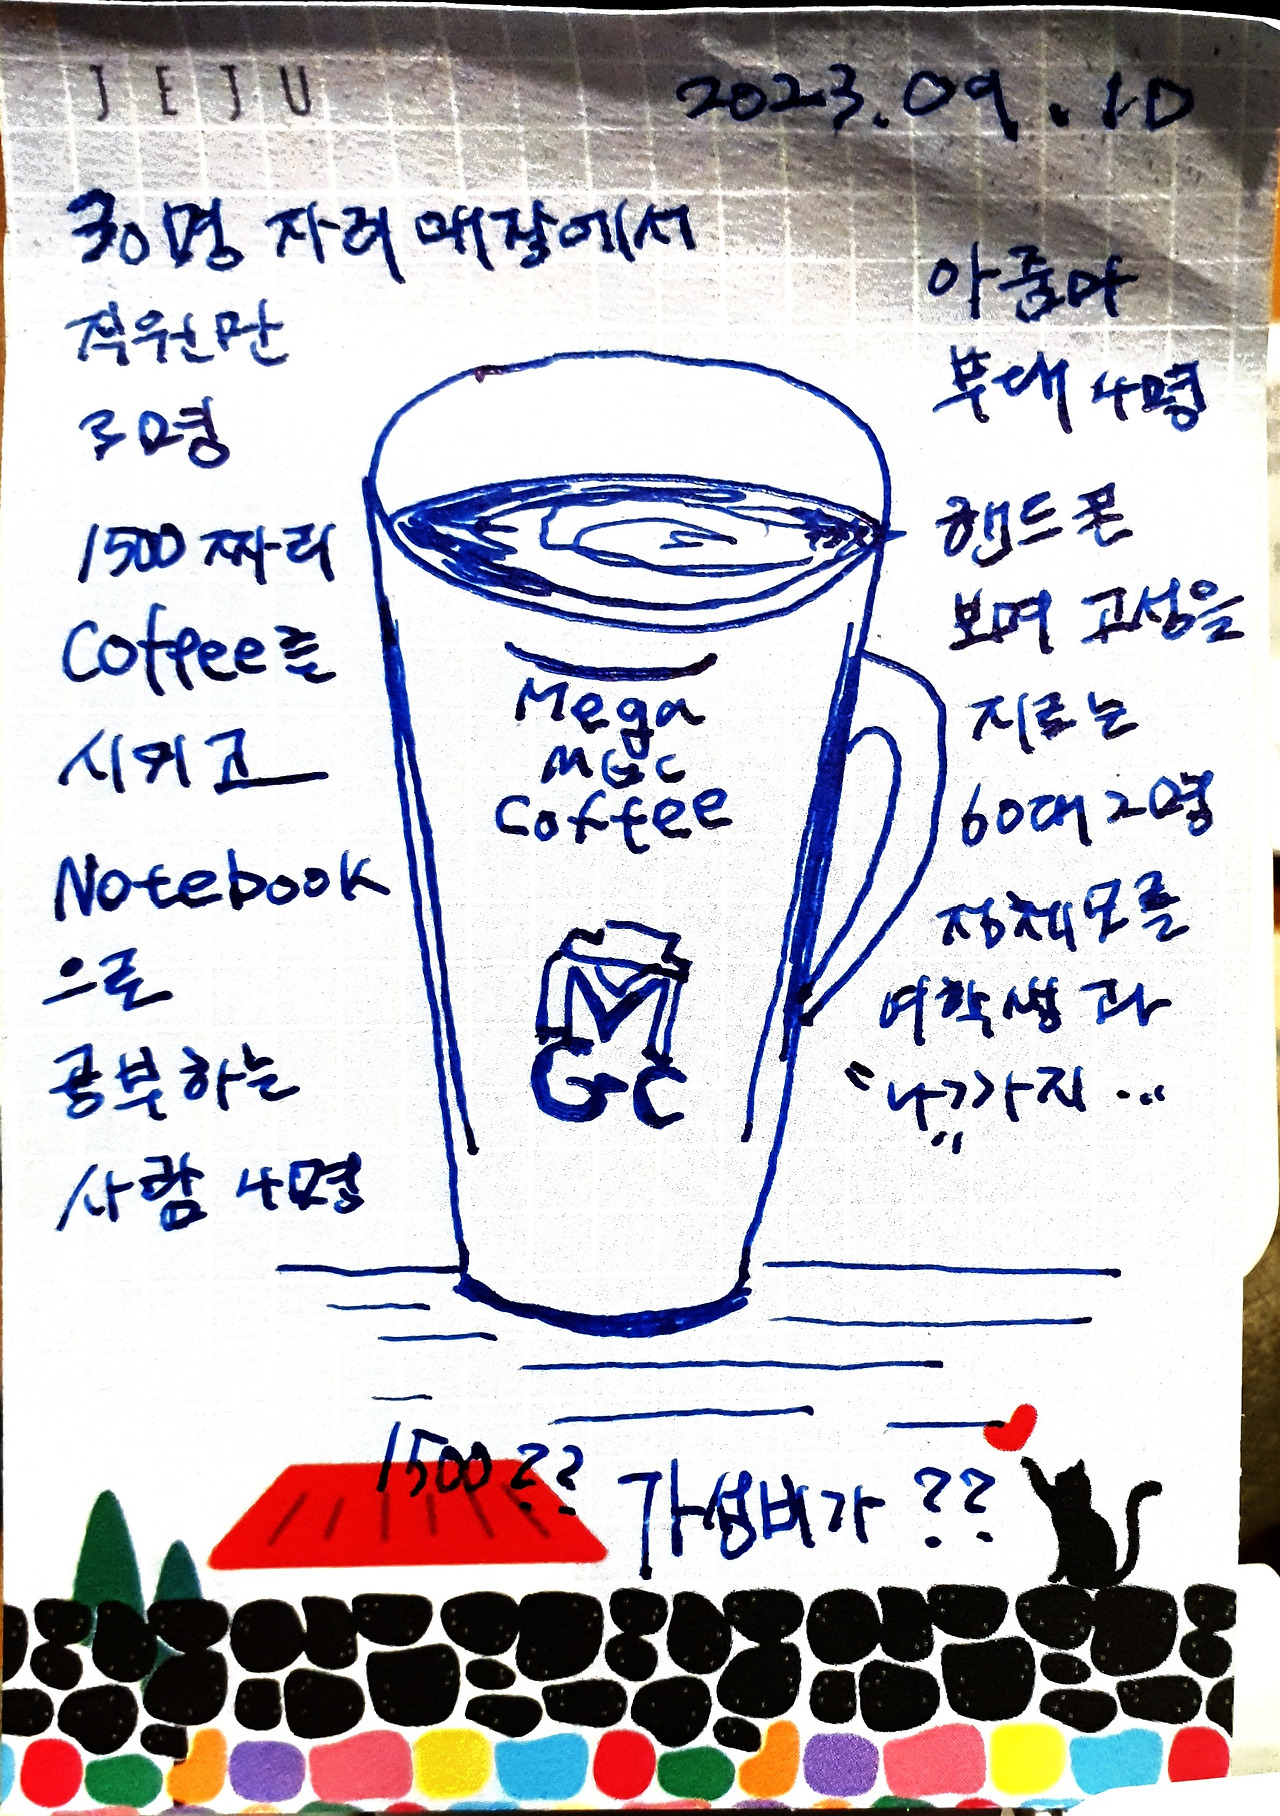 JEJU
2023.09.10
30명 자리 매장에서
직원만
3명
1500짜리
Coffee를
시키고
Notebook
으로
공부하는
사람 4명
Mega
MGC
Coffee
M
GC
아줌마
부대 4명
핸드폰
보며 고성을
지르는
60대 2명
정체모를
여학생과
"나"까지...
1500??
가성비가 ??